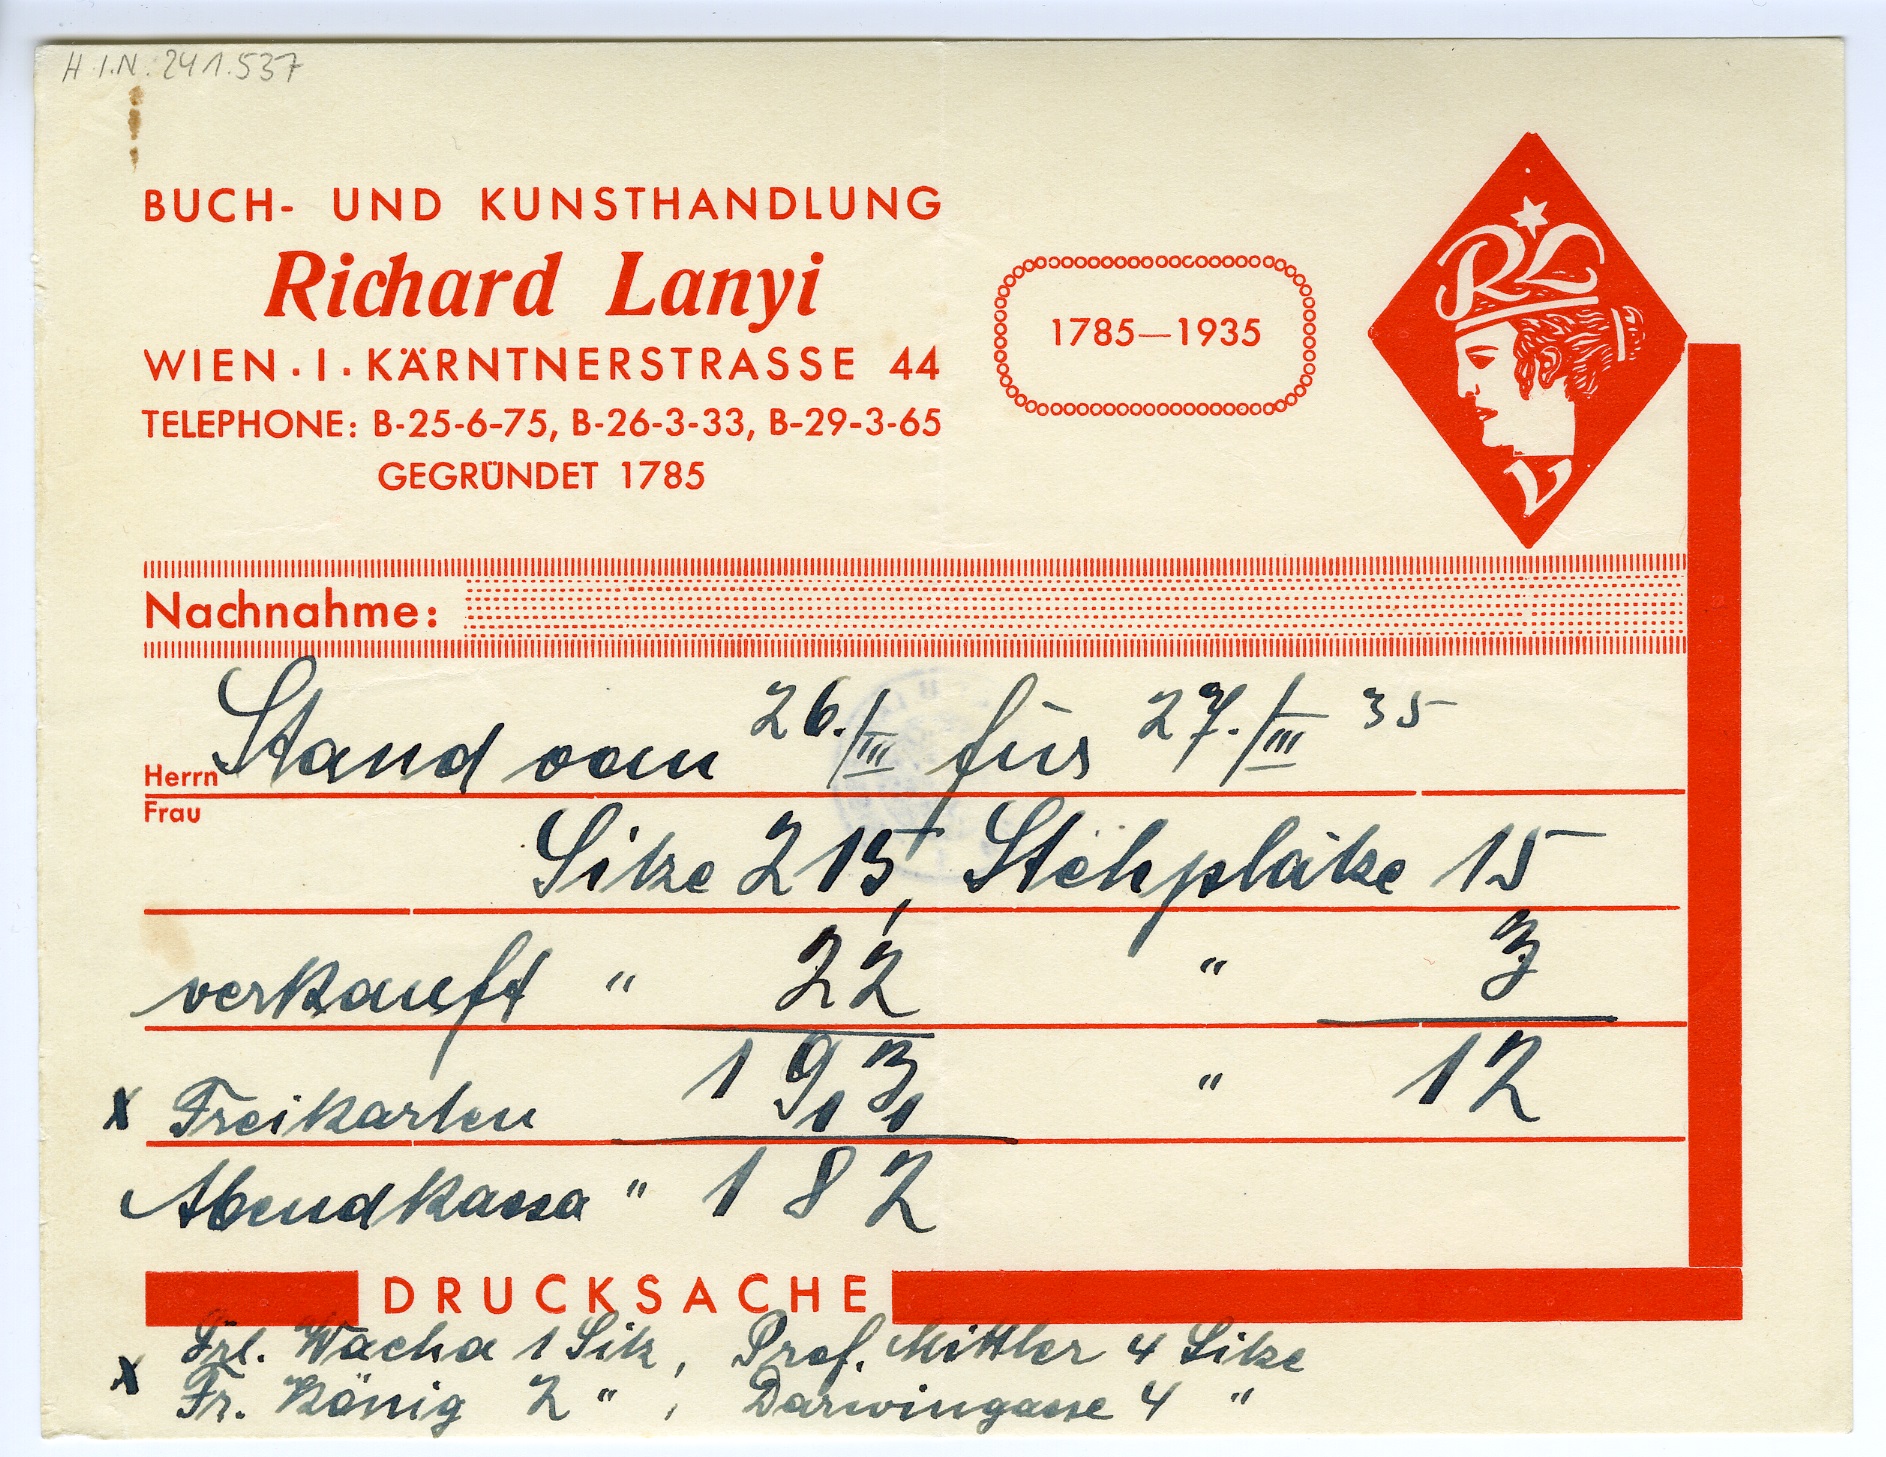 H.I.N. 241.537
BUCH- UND KUNSTHANDLUNG
Richard Lanyi
WIEN · I · KÄRNTNERSTRASSE 44
TELEPHONE: B-25-6-75, B-26-3-33, B-29-3-65
GEGRÜNDET 1785
1785—1935
RL
V
Nachnahme:
Stand vom 26./III für 27./III 35
Herrn
Frau
Sitze 215, Stehplätze 15
verkauft " 22 " 3
193 " 12
x Freikarten 11
Abendkassa " 182
DRUCKSACHE
Frl. Wacha 1 Sitz, Prof. Mittler 4 Sitze
x Fr. König 2 ", Darwingasse 4 "